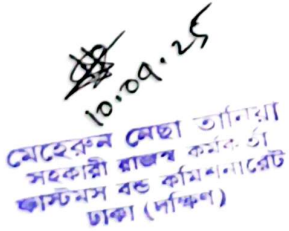 ১০.০৯.২৫
মেহেরুন নেছা তানিয়া
সহকারী রাজস্ব কর্মকর্তা
কাস্টমস বন্ড কমিশনারেট
ঢাকা (দক্ষিণ)